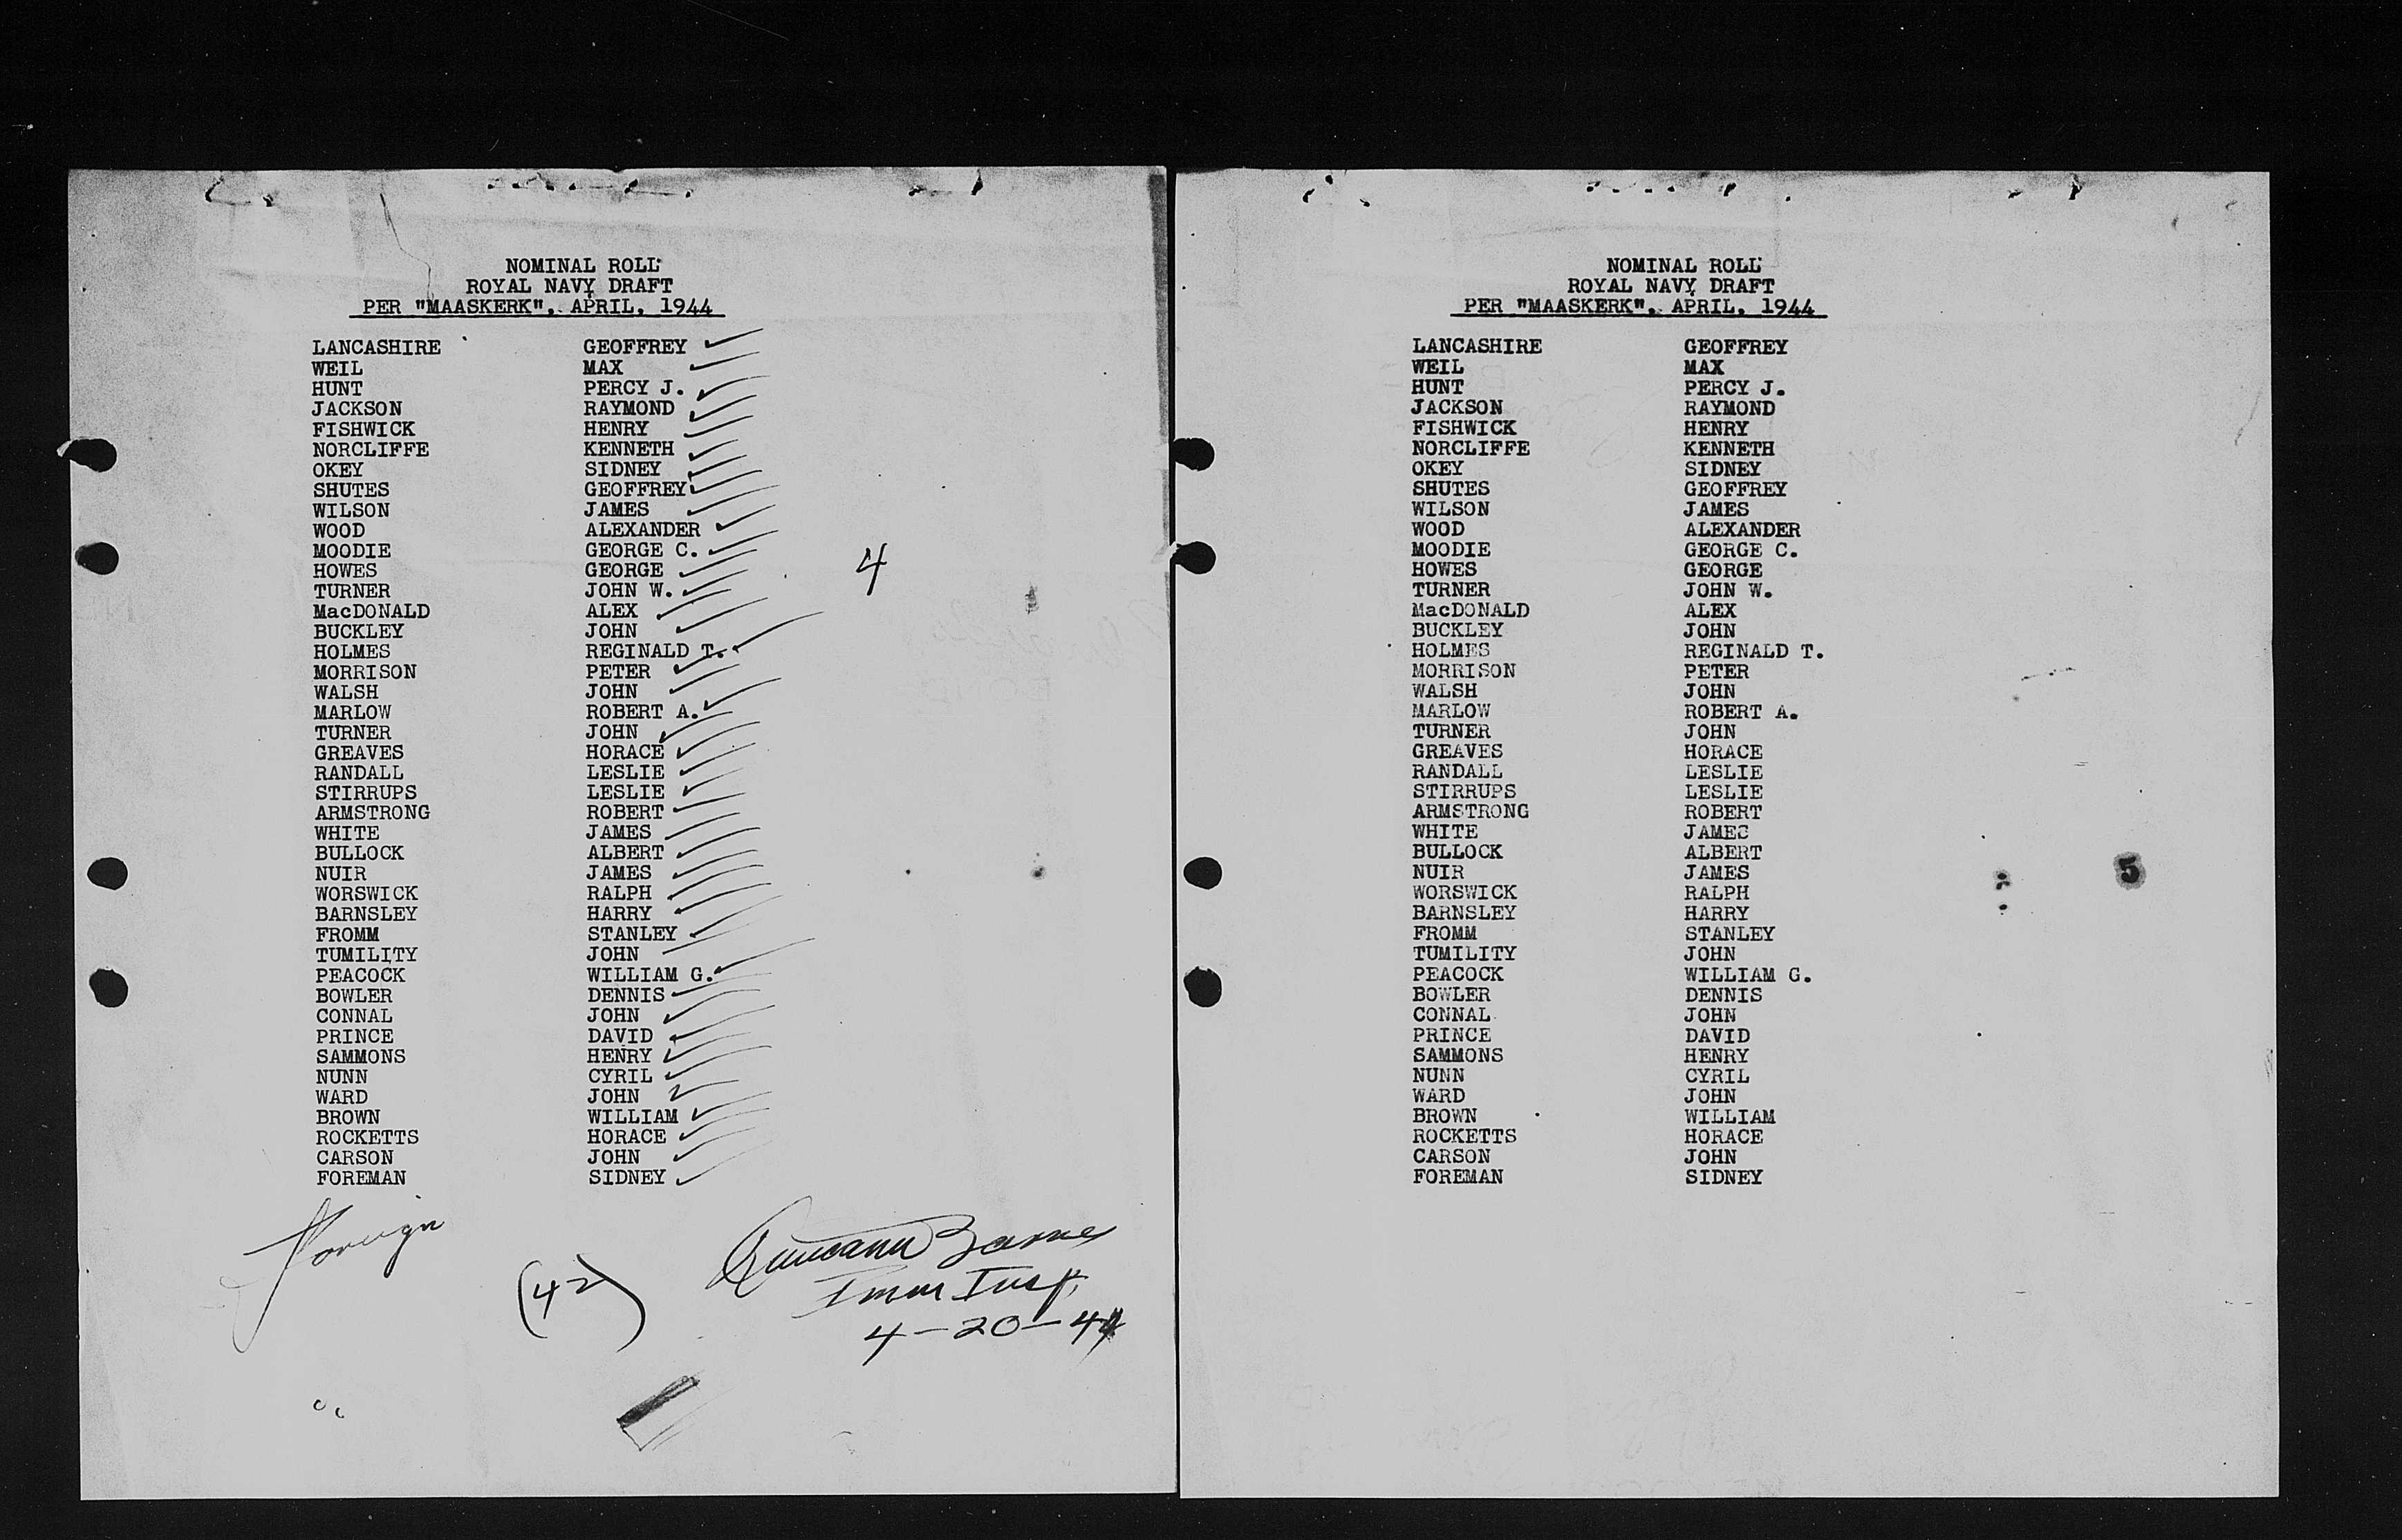 NOMINAL ROLL
ROYAL NAVY DRAFT
PER "MAASKERK", APRIL, 1944
LANCASHIRE GEOFFREY
WEIL MAX
HUNT PERCY J.
JACKSON RAYMOND
FISHWICK HENRY
NORCLIFFE KENNETH
OKEY SIDNEY
SHUTES GEOFFREY
WILSON JAMES
WOOD ALEXANDER
MOODIE GEORGE C.
HOWES GEORGE
4
TURNER JOHN W.
MacDONALD ALEX
BUCKLEY JOHN
HOLMES REGINALD T.
MORRISON PETER
WALSH JOHN
MARLOW ROBERT A.
TURNER JOHN
GREAVES HORACE
RANDALL LESLIE
STIRRUPS LESLIE
ARMSTRONG ROBERT
WHITE JAMES
BULLOCK ALBERT
NUIR JAMES
WORSWICK RALPH
BARNSLEY HARRY
FROMM STANLEY
TUMILITY JOHN
PEACOCK WILLIAM G.
BOWLER DENNIS
CONNAL JOHN
PRINCE DAVID
SAMMONS HENRY
NUNN CYRIL
WARD JOHN
BROWN WILLIAM
ROCKETTS HORACE
CARSON JOHN
FOREMAN SIDNEY
Foreign
(42)
Imm Insp.
4-20-44
NOMINAL ROLL
ROYAL NAVY DRAFT
PER "MAASKERK", APRIL, 1944
LANCASHIRE GEOFFREY
WEIL MAX
HUNT PERCY J.
JACKSON RAYMOND
FISHWICK HENRY
NORCLIFFE KENNETH
OKEY SIDNEY
SHUTES GEOFFREY
WILSON JAMES
WOOD ALEXANDER
MOODIE GEORGE C.
HOWES GEORGE
TURNER JOHN W.
MacDONALD ALEX
BUCKLEY JOHN
HOLMES REGINALD T.
MORRISON PETER
WALSH JOHN
MARLOW ROBERT A.
TURNER JOHN
GREAVES HORACE
RANDALL LESLIE
STIRRUPS LESLIE
ARMSTRONG ROBERT
WHITE JAMES
BULLOCK ALBERT
NUIR JAMES
5
WORSWICK RALPH
BARNSLEY HARRY
FROMM STANLEY
TUMILITY JOHN
PEACOCK WILLIAM G.
BOWLER DENNIS
CONNAL JOHN
PRINCE DAVID
SAMMONS HENRY
NUNN CYRIL
WARD JOHN
BROWN WILLIAM
ROCKETTS HORACE
CARSON JOHN
FOREMAN SIDNEY